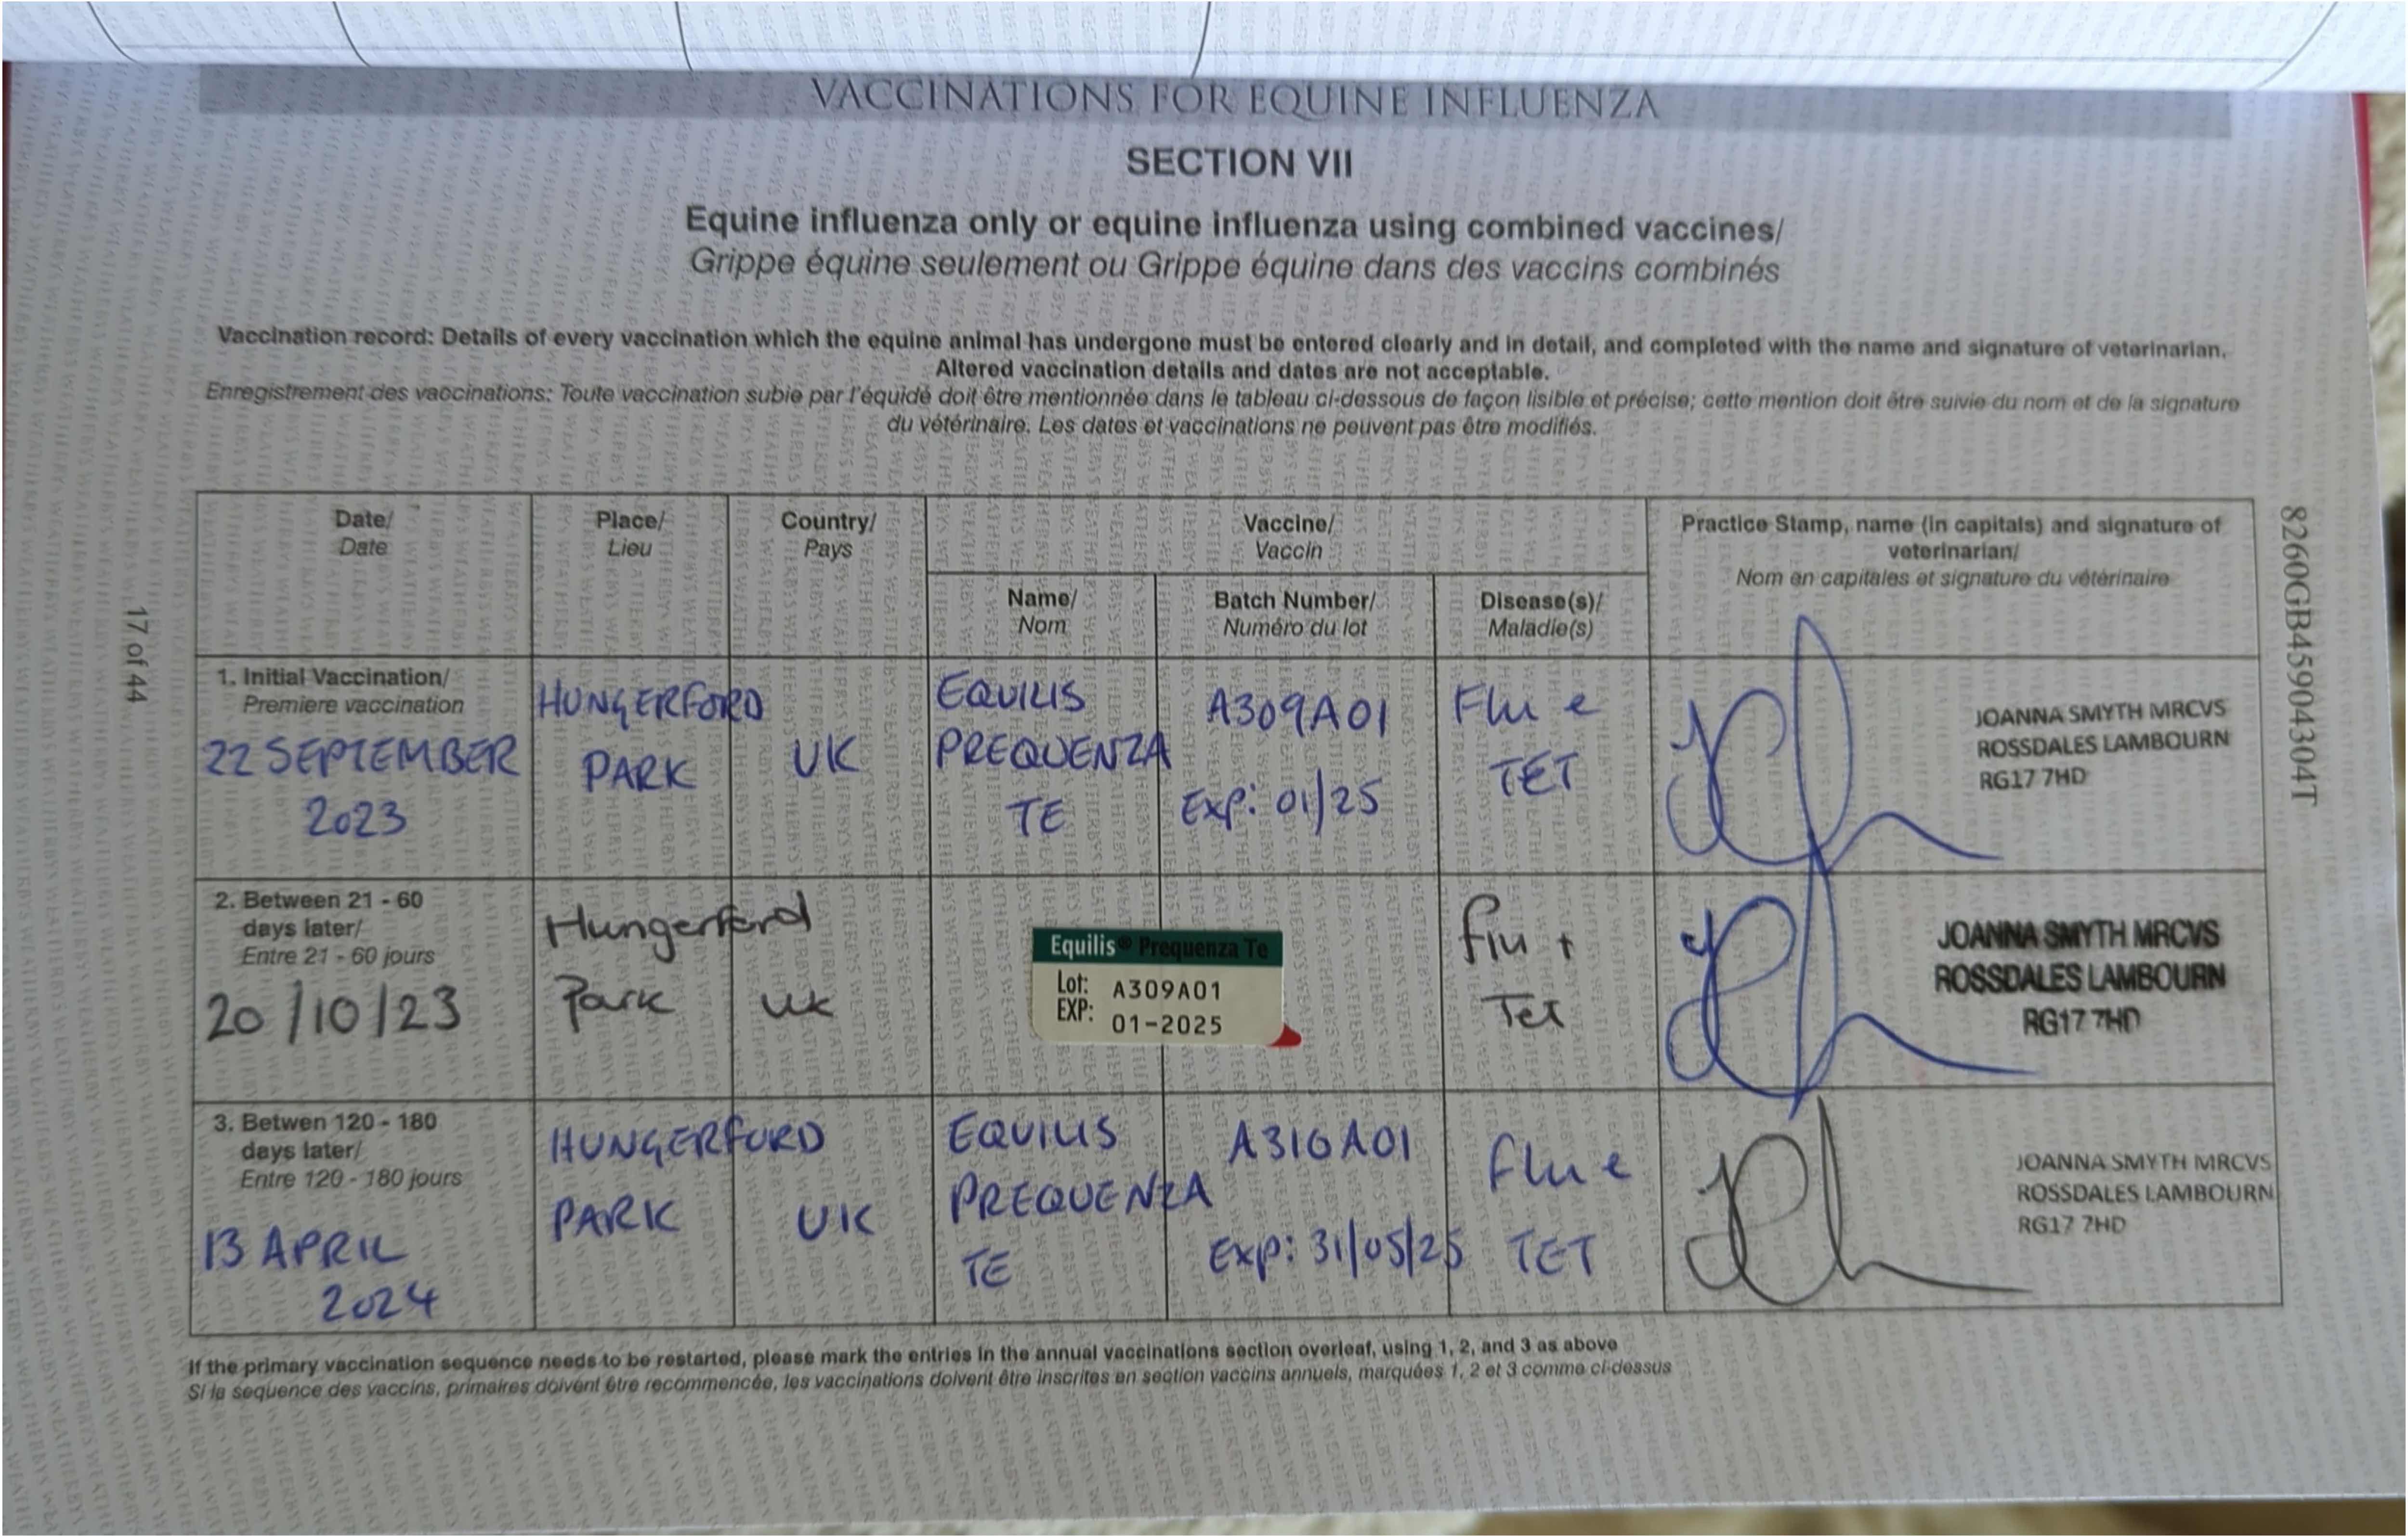 VACCINATIONS FOR EQUINE INFLUENZA
SECTION VII
Equine influenza only or equine influenza using combined vaccines/
Grippe équine seulement ou Grippe équine dans des vaccins combinés
Vaccination record: Details of every vaccination which the equine animal has undergone must be entered clearly and in detail, and completed with the name and signature of veterinarian.
Altered vaccination details and dates are not acceptable.
Enregistrement des vaccinations: Toute vaccination subie par l'équidé doit être mentionnée dans le tableau ci-dessous de façon lisible et précise; cette mention doit être suivie du nom et de la signature
du vétérinaire. Les dates et vaccinations ne peuvent pas être modifiés.
Date/
Date
Place/
Lieu
Country/
Pays
Vaccine/
Vaccin
Name/
Nom
Batch Number/
Numéro du lot
Disease(s)/
Maladie(s)
Practice Stamp, name (in capitals) and signature of
veterinarian/
Nom en capitales et signature du vétérinaire
1. Initial Vaccination/
Premiere vaccination
22 SEPTEMBER
2023
HUNGERFORD
PARK
UK
EQUILIS
PREQUENZA
TE
A309A01
Exp: 01/25
Flu e
TET
JOANNA SMYTH MRCVS
ROSSDALES LAMBOURN
RG17 7HD
2. Between 21 - 60
days later/
Entre 21 - 60 jours
20/10/23
Hungerford
Park
UK
Equilis® Prequenza Te
Lot: A309A01
EXP: 01-2025
flu +
Tet
JOANNA SMYTH MRCVS
ROSSDALES LAMBOURN
RG17 7HD
3. Betwen 120 - 180
days later/
Entre 120 - 180 jours
13 APRIL
2024
HUNGERFORD
PARK
UK
EQUILIS
PREQUENZA
TE
A310A01
Exp: 31/05/25
Flu e
TET
JOANNA SMYTH MRCVS
ROSSDALES LAMBOURN
RG17 7HD
If the primary vaccination sequence needs to be restarted, please mark the entries in the annual vaccinations section overleaf, using 1, 2, and 3 as above
Si la sequence des vaccins, primaires doivent être recommencée, les vaccinations doivent être inscrites en section vaccins annuels, marquées 1, 2 et 3 comme ci-dessus
17 of 44
8260GB45904304T